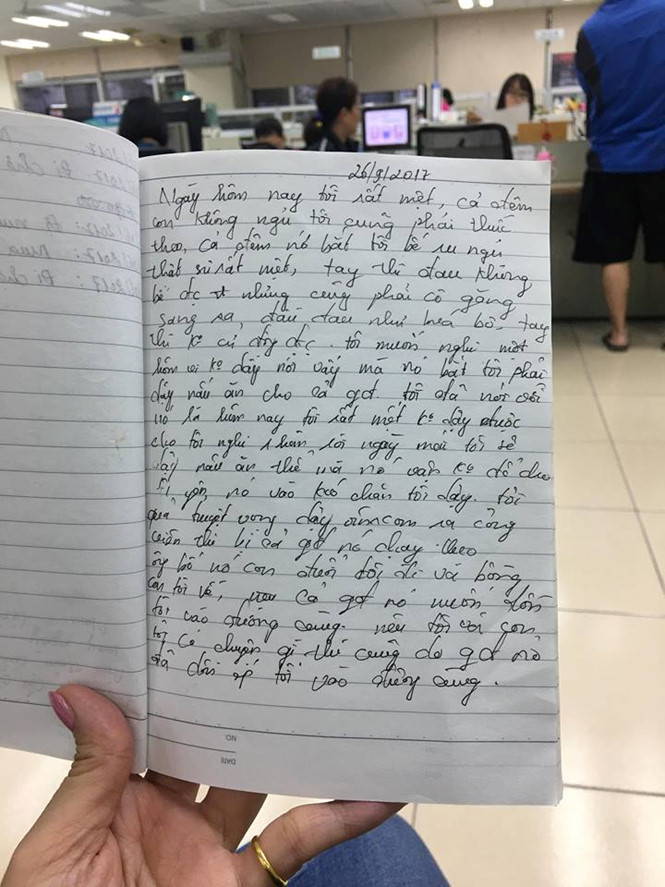 26/9/2017
Ngày hôm nay tôi rất mệt, cả đêm
con không ngủ tôi cũng phải thức
theo, cả đêm nó bắt tôi bế ru ngủ
thật sự rất mệt, tay thì đau không
bế đc nhưng cũng phải cố gắng
sáng ra, đầu đau như búa bổ, tay
thì ko cử động đc. tôi muốn nghỉ một
hôm ko dậy nổi vậy mà nó bắt tôi phải
dậy nấu ăn cho cả gđ. tôi đã nói với
nó là hôm nay tôi rất mệt ko dậy được
cho tôi nghỉ ngày mai tôi sẽ
dậy nấu ăn thế mà nó vẫn ko để cho
tôi yên, nó vào kéo chăn tôi dậy. tôi
quá tuyệt vọng dậy ôm con ra công
viên thì bị cả gđ nó chạy theo
ông bố nó còn đuổi tôi đi và bồng
con tôi về, cả gđ nó muốn dồn
tôi vào đường cùng. nếu tôi với con
tôi có chuyện gì thì cũng do gđ nó
đã dồn ép tôi vào đường cùng.
NO.
DATE